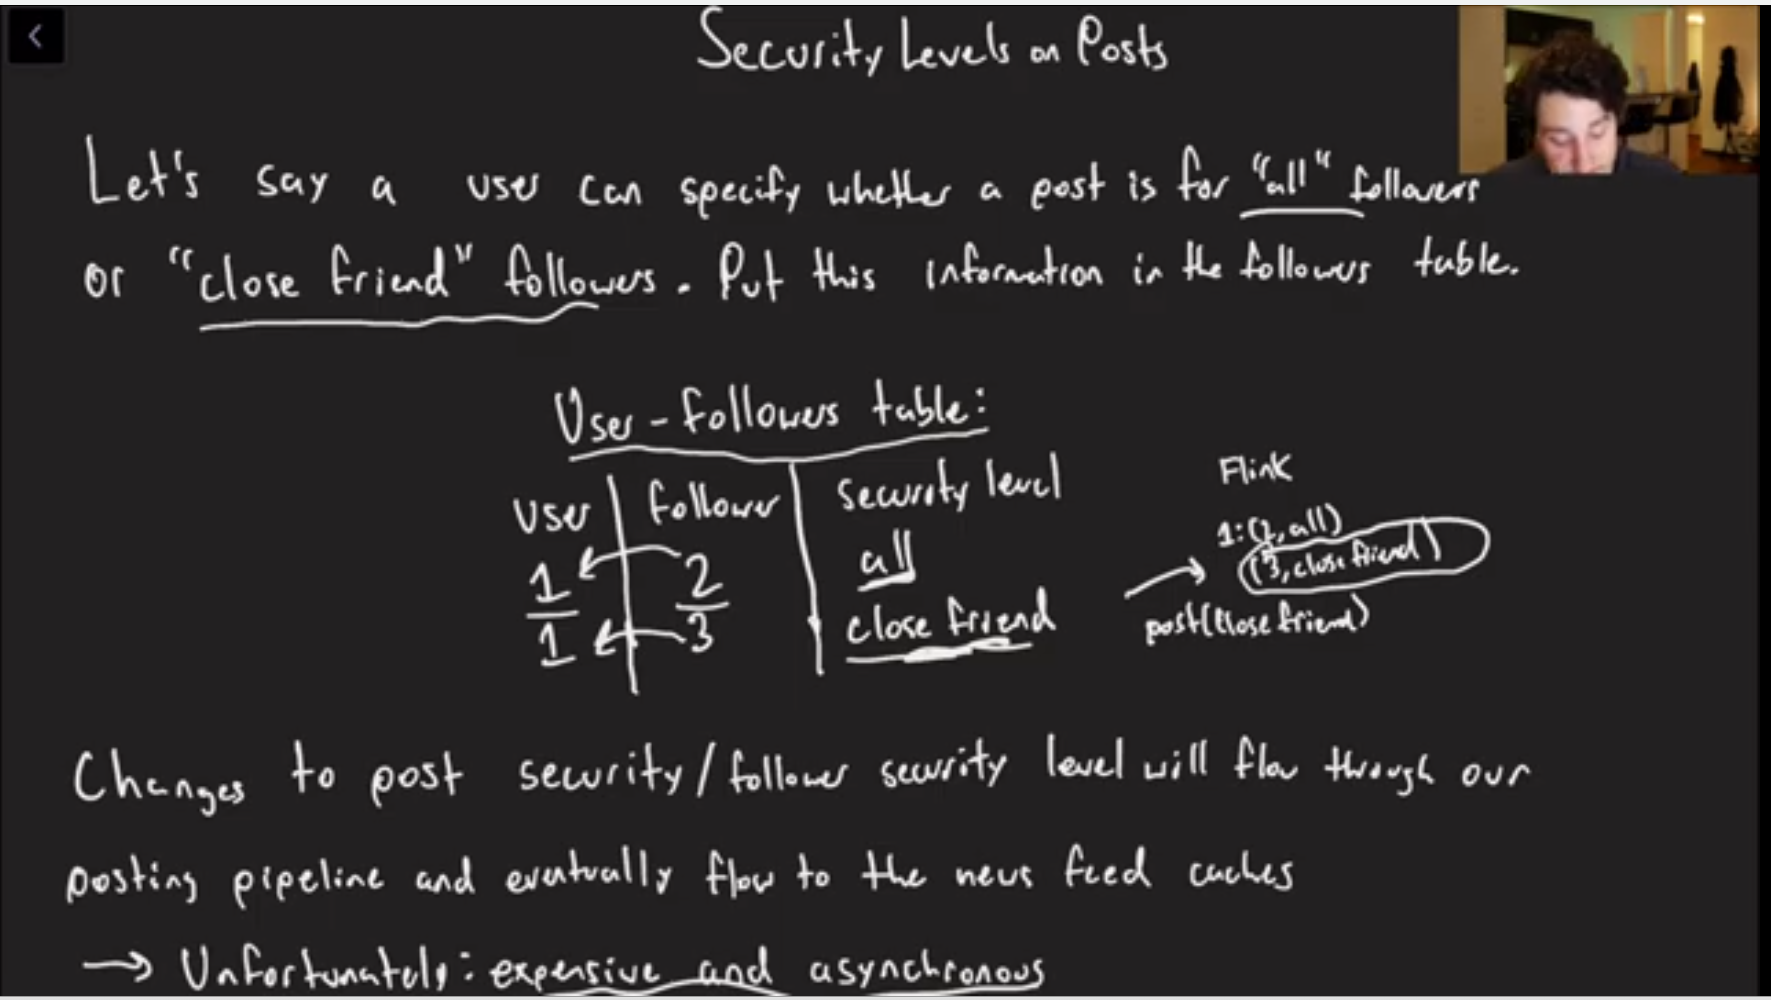 Security Levels on Posts
Let's say a user can specify whether a post is for "all" followers
or "close friend" followers. Put this information in the followers table.
User-followers table:
user follower security level
1 2 all
1 3 close friend
Flink
1:(2, all)
(3, close friend)
post(close friend)
Changes to post security/follower security level will flow through our
posting pipeline and eventually flow to the news feed caches
→ Unfortunately: expensive and asynchronous